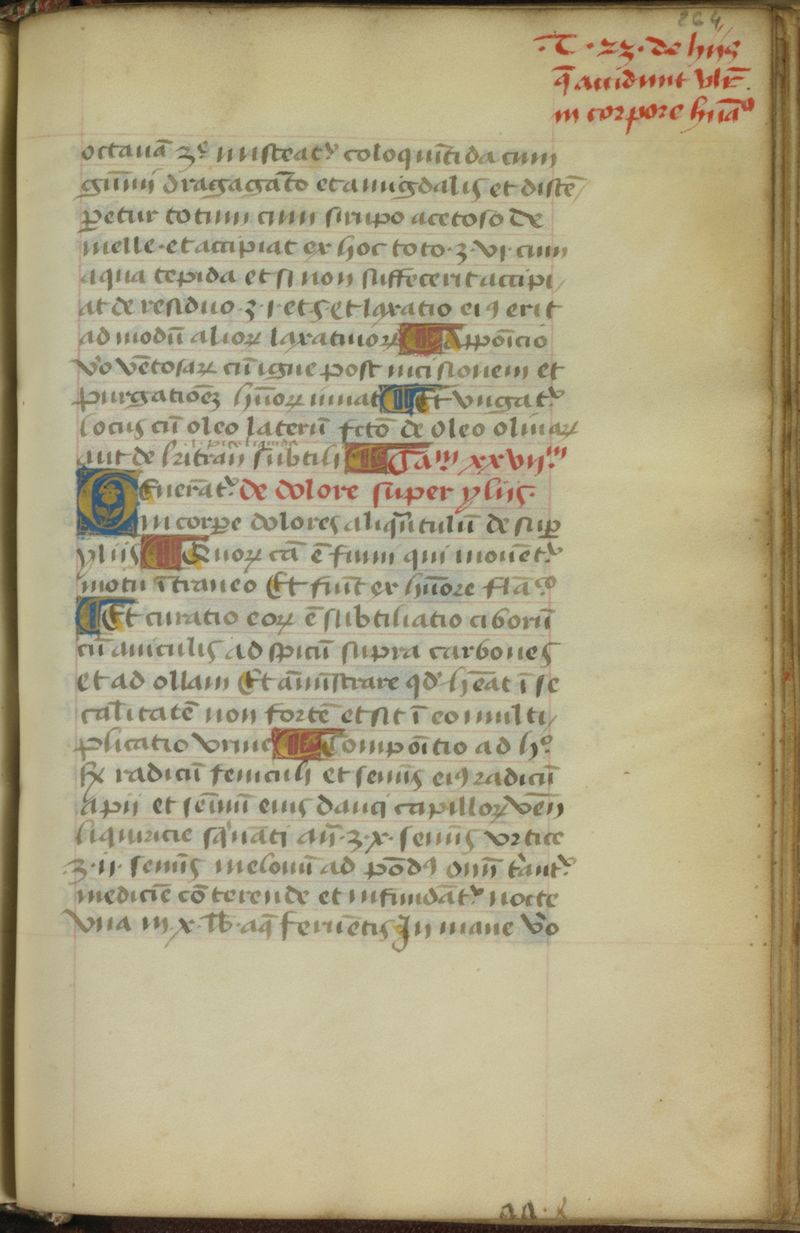 264
·T·23· de hiis
q̄ accidunt vlr̄
in corpore hūāo
octauā ʒe misteatr coloquīti da cum
gūmi dragagāto et amigdalis et distē
ꝑetur totum cum sirupo acetoso de
melle · et accipiat ex hoc toto · ʒ · vi cum
aqua tepida et si non suffecerit accipi
at de residuo · ʒ · i · et ē et laxatio eiꝰ erit
ad modū alioꝝ laxatiuoꝝ Appōicio
vo vētosaꝝ cū igne post incisionem et
purgatiōeꝫ hūoꝝ iuuat Et vngatr
locus cū oleo laterū fcto de oleo oliuaꝝ
aut de kitran subtili Cam xxviim
fuerāt de dolore super yliis
in corꝑe dolores aliqūtulū de suꝑ
yliis Quoꝝ cā ē fumi qui mouētr
motu ītraneo Et fiūt ex hūore flāo
Et curatio eoꝝ ē subtiliatio ciborū
cū auiculis ad spicū supra carbones
et ad ollam Et āmīstrare qd hēat ī se
calitatē non fortē et sit ī eo multi
plicatio vrine Compōitio ad ho
Rx radicū feniculi et semīs eiꝰ radicū
apii et semīum eius dauci capilloꝝ vēn
liquiricie sqināti ān · ʒ · x · semīs vrtice
ʒ · ii · semīs melonū ad pōdꝰ oniū terantr
medicīe cōterende et infundātr nocte
vna in · x · lb · aq̄ feruētis In mane vo